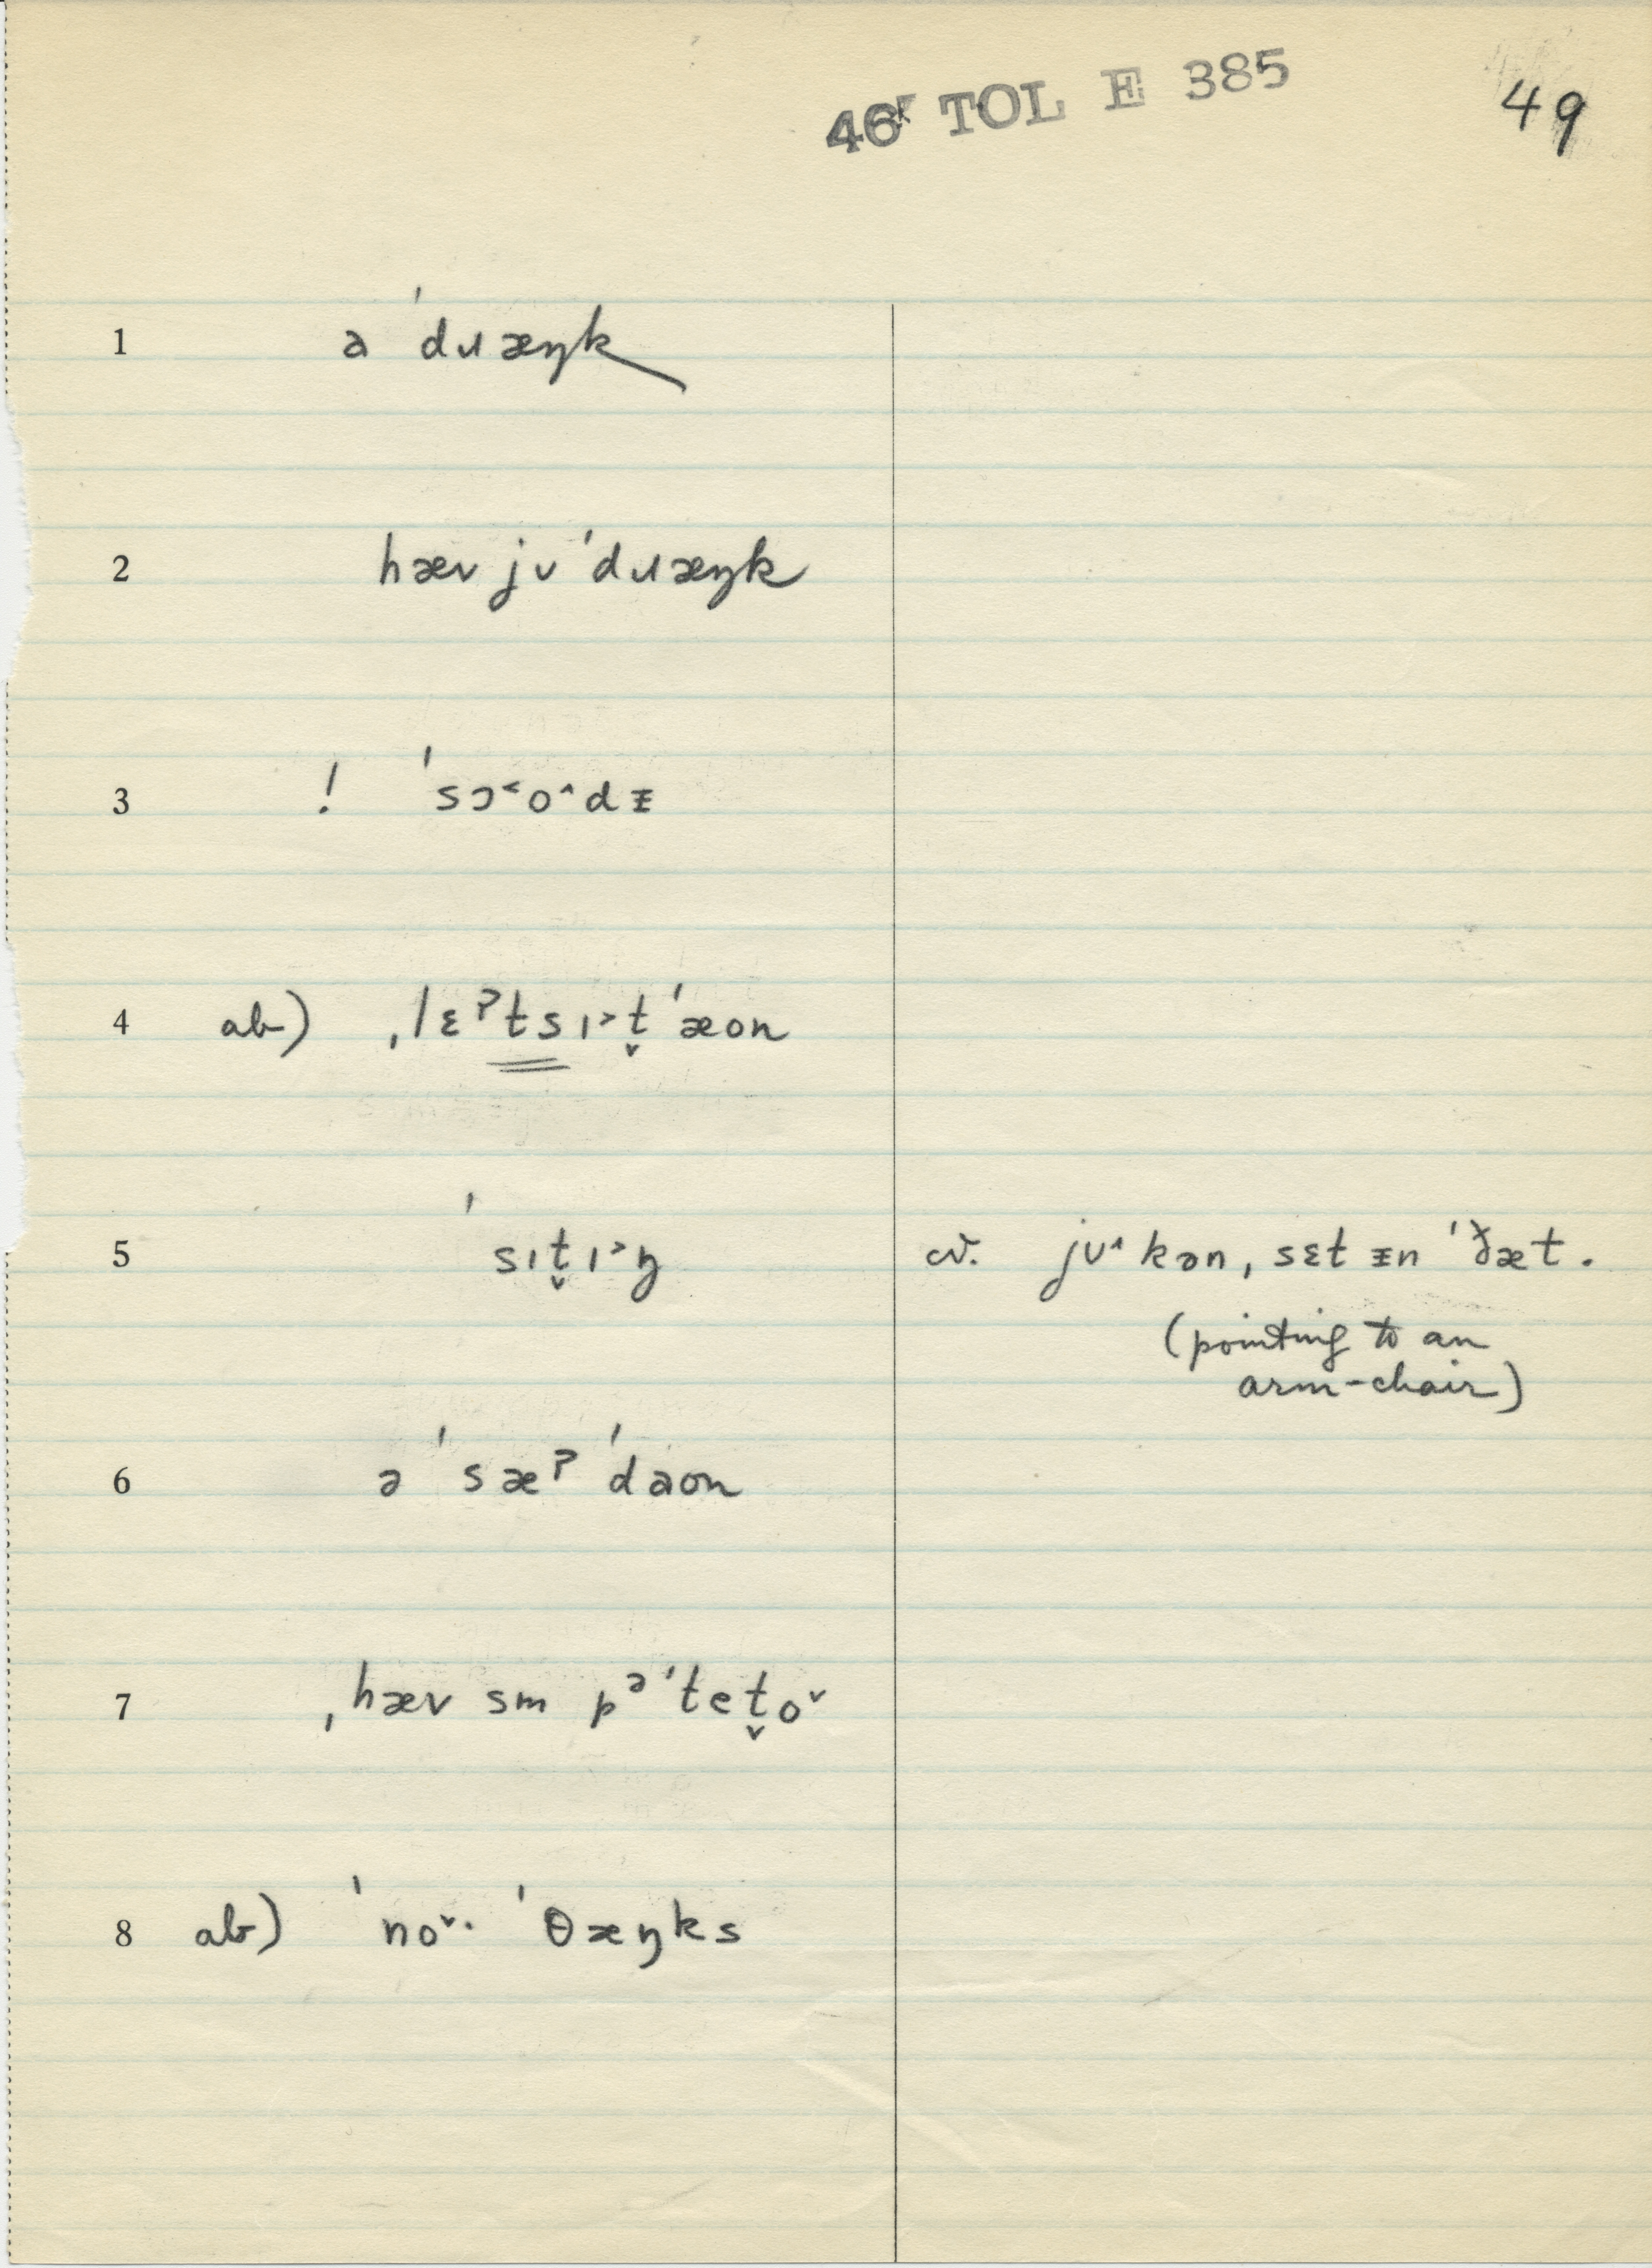 46K TOL E 385
49
1 a ˈdɹæŋk
2 hæv jʊ ˈdɹæŋk
3 ! ˈsɔ˂o˄dɪ̵
4 ab) ˌlɛˀtsɪ˃t̬ˈæon
5 sɪt̬ɪ˃ŋ
cv. jʊ˄ kən ˌsɛt ɪ̵n ˈð̯æt.
(pointing to an
arm-chair)
6 ə ˈsæˀ ˈdaon
7 ˌhæv sm pᵊˈtet̬o˅
8 ab) ˈno˅· ˈθæŋks